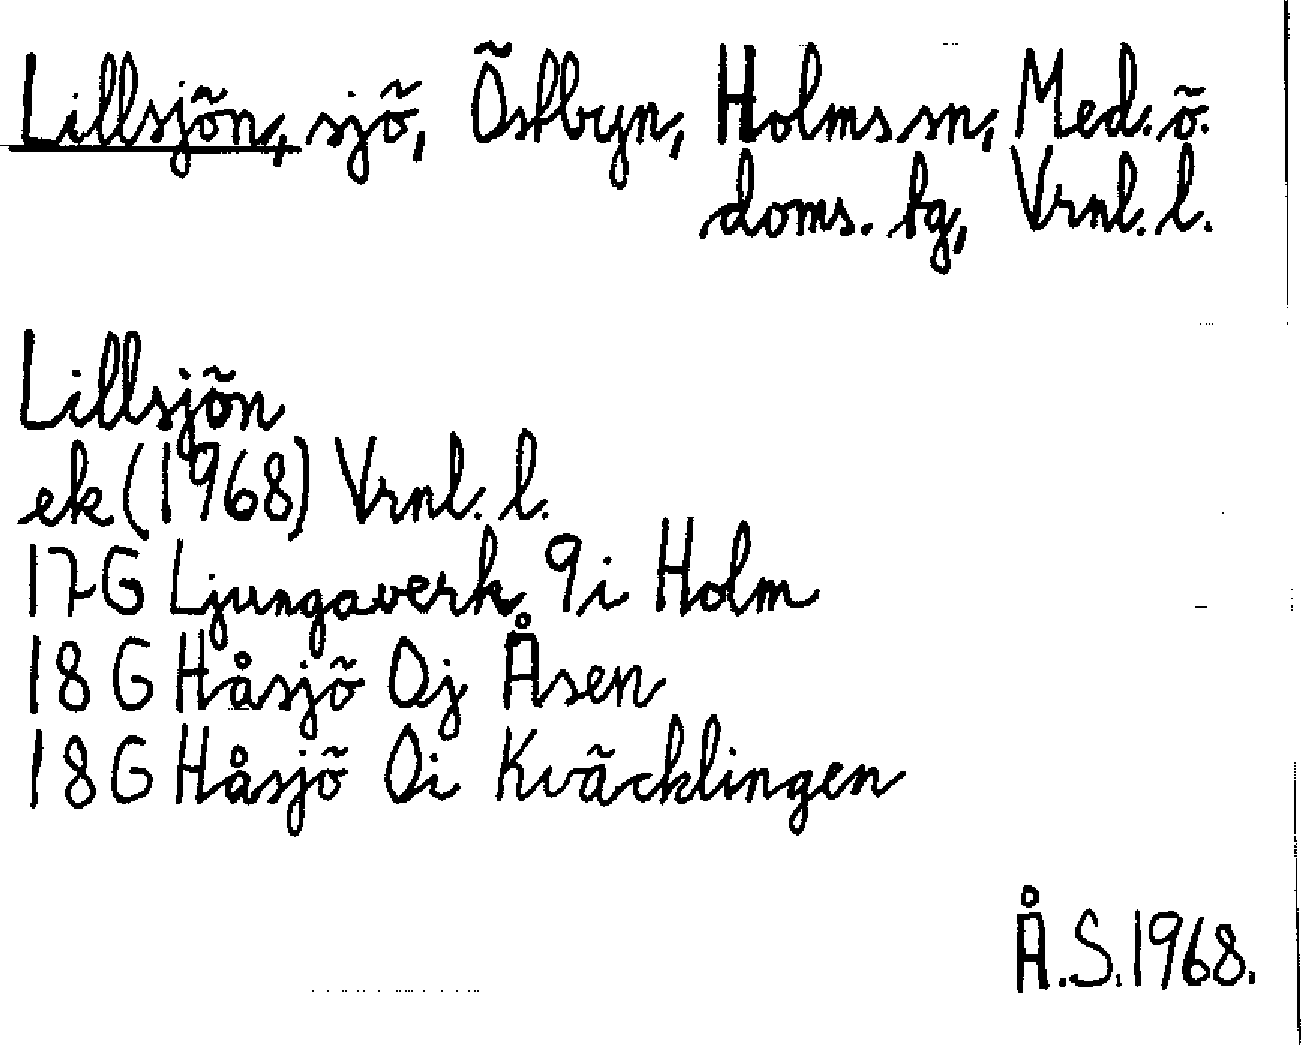 Lillsjön, sjö, Östbyn, Holms sn, Med. ö.
doms. tg, Vrnl. l.
Lillsjön
ek (1968) Vrnl. l.
17G Ljungaverk 9i Holm
18G Håsjö 0j Åsen
18G Håsjö 0i Kväcklingen
Å.S. 1968.